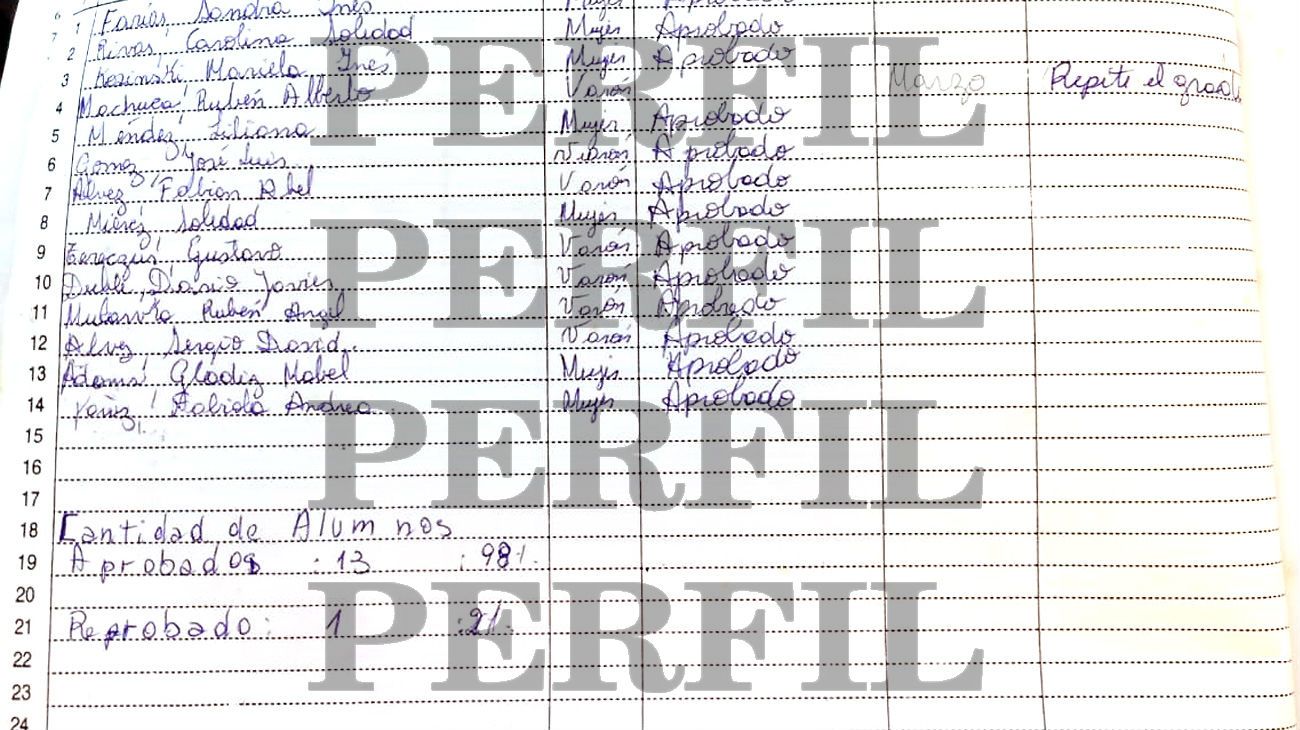 1 Farías Sandra Inés Mujer Aprobado
2 Rivas, Carolina Soledad Mujer Aprobado
3 Kozinski Mariela Inés Mujer Aprobado
4 Machuca, Rubén Alberto Varón Marzo Repite el grado
5 Méndez, Liliana Mujer Aprobado
6 Gomez, José Luis Varón Aprobado
7 Alvez, Fabian Abel Varón Aprobado
8 Mierez, Soledad Mujer Aprobado
9 Gustavo Varón Aprobado
10 Darío Javier Varón Aprobado
11 Rubén Angel Varón Aprobado
12 Alvez, Sergio David. Varón Aprobado
13 Adams, Gladiz Mabel Mujer Aprobado
14 Fabiola Andrea Mujer Aprobado
15
16
17
18 Cantidad de Alumnos
19 Aprobados : 13 : 98%.
20
21 Reprobado: 1 : 2%.
22
23
24
PERFIL
PERFIL
PERFIL
PERFIL